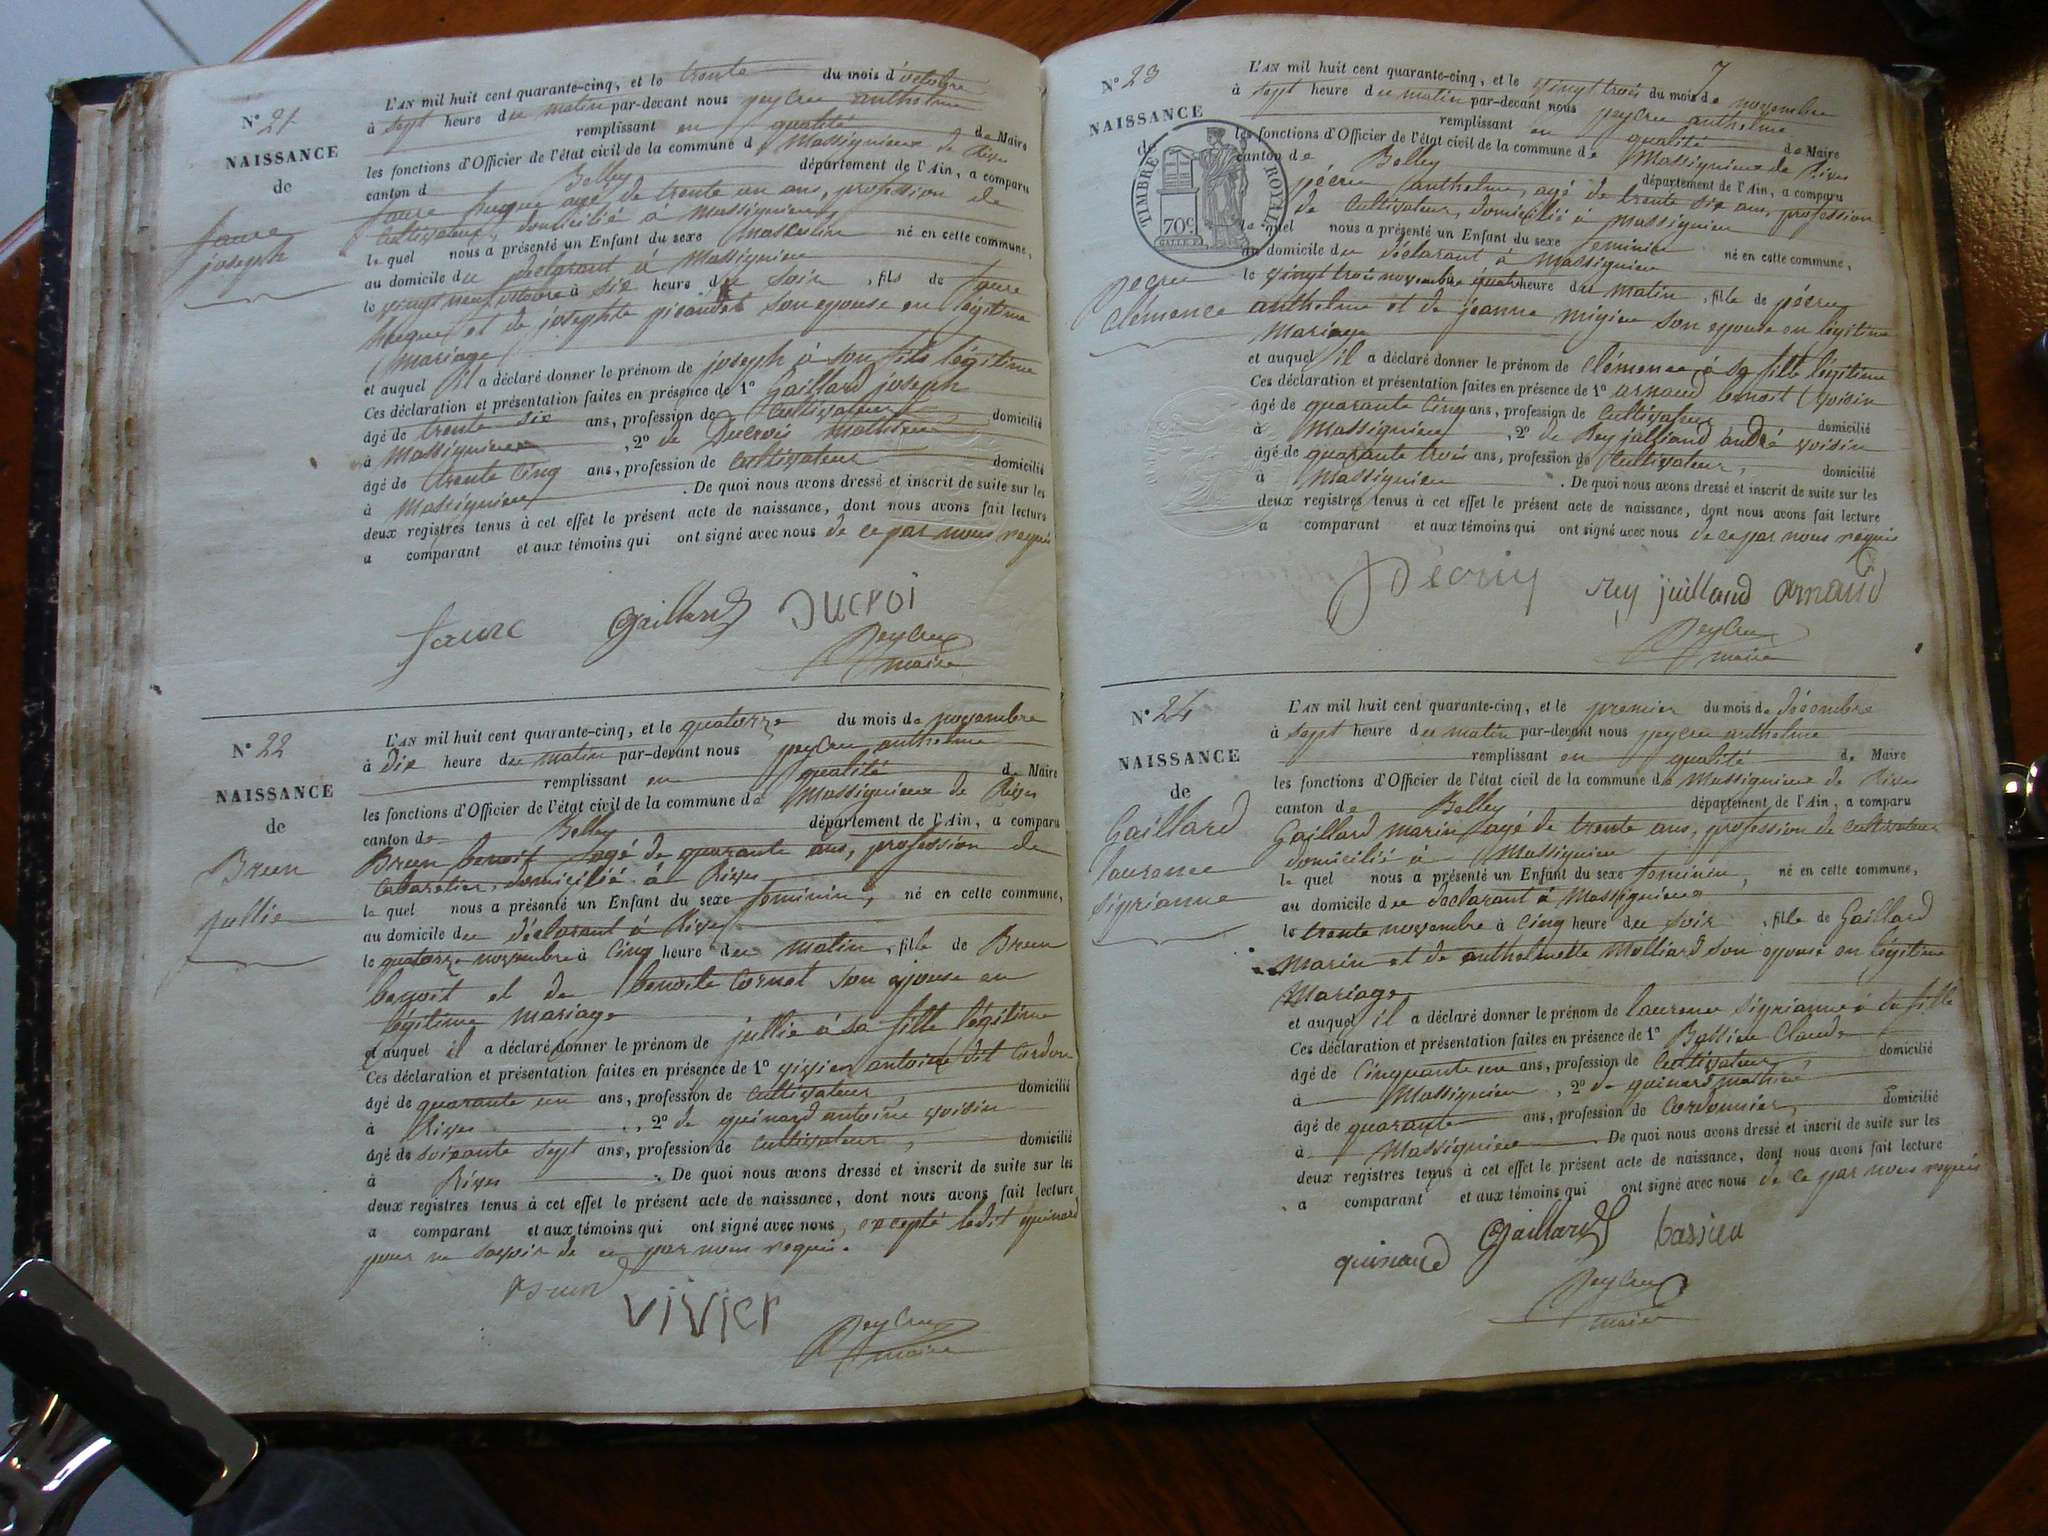 N° 21
NAISSANCE
de
faure
joseph
L'AN mil huit cent quarante-cinq, et le trente du mois d'octobre
à sept heure du matin par-devant nous peycru anthelme
remplissant en qualité de Maire
les fonctions d'Officier de l'état civil de la commune d Massignieux de Rives
canton d Belley département de l'Ain, a comparu
faure hugue agé de trente un ans, profession de
cultivateur, domicilié à Massignieux
le quel nous a présenté un Enfant du sexe Masculin né en cette commune,
au domicile du déclarant à Massignieu
le vingt neuf octobre à six heure du soir, fils de faure
hugue et de josephte son epouse en légitime
mariage
et auquel il a déclaré donner le prénom de joseph à son fils légitime
Ces déclaration et présentation faites en présence de 1° Gaillard joseph
âgé de trente six ans, profession de cultivateur, domicilié
à Massignieux, 2° de Ducroi Mathieu
âgé de trente cinq ans, profession de cultivateur domicilié
à Massignieu. De quoi nous avons dressé et inscrit de suite sur les
deux registres tenus à cet effet le présent acte de naissance, dont nous avons fait lecture
a comparant et aux témoins qui ont signé avec nous de ce par nous requis
faure Gaillard Ducroi
Peycru
maire
N° 22
NAISSANCE
de
Brun
jullie
L'AN mil huit cent quarante-cinq, et le quatorze du mois de novembre
à dix heure du matin par-devant nous peycru anthelme
remplissant en qualité de Maire
les fonctions d'Officier de l'état civil de la commune de Massignieux de Rives
canton de Belley département de l'Ain, a comparu
Brun benoit agé de quarante ans, profession de
cabaretier, domicilié à Rives
le quel nous a présenté un Enfant du sexe feminin, né en cette commune,
au domicile du déclarant à Rives
le quatorze novembre à cinq heure du matin, fille de Brun
benoit et de benoite Cornet son epouse en
légitime mariage
et auquel il a déclaré donner le prénom de jullie à sa fille légitime
Ces déclaration et présentation faites en présence de 1° vivier antoine dit Cordon
âgé de quarante un ans, profession de cultivateur, domicilié
à Rives, 2° de quinard antoine voisin
âgé de soixante sept ans, profession de cultivateur, domicilié
à Rives. De quoi nous avons dressé et inscrit de suite sur les
deux registres tenus à cet effet le présent acte de naissance, dont nous avons fait lecture
a comparant et aux témoins qui ont signé avec nous, excepté ledit quinard
pour ne savoir de ce par nous requis.
Brun VIVIER
Peycru
maire
7
N° 23
NAISSANCE
de
TIMBRE ROYAL
70c
pécru
clémence
L'AN mil huit cent quarante-cinq, et le vingt trois du mois de novembre
à sept heure du matin par-devant nous peycru anthelme
remplissant en qualité de Maire
les fonctions d'Officier de l'état civil de la commune de Massignieux de Rives
canton de Belley département de l'Ain, a comparu
pécru anthelme, agé de trente six ans, profession
de cultivateur, domicilié à Massignieu
le quel nous a présenté un Enfant du sexe feminin né en cette commune,
au domicile du déclarant à Massignieu
le vingt trois novembre heure du matin, fille de pécru
anthelme et de jeanne migieu son epouse en légitime
Mariage
et auquel il a déclaré donner le prénom de clémence à sa fille légitime
Ces déclaration et présentation faites en présence de 1° arnaud benoit voisin
âgé de quarante cinq ans, profession de cultivateur domicilié
à Massignieu, 2° de Rey juilland andré voisin
âgé de quarante trois ans, profession de cultivateur, domicilié
à Massignieu. De quoi nous avons dressé et inscrit de suite sur les
deux registres tenus à cet effet le présent acte de naissance, dont nous avons fait lecture
a comparant et aux témoins qui ont signé avec nous de ce par nous requis
rey juilland arnaud
Peycru
maire
N° 24
NAISSANCE
de
Gaillard
laurence
siprianne
L'AN mil huit cent quarante-cinq, et le premier du mois de décembre
à sept heure du matin par-devant nous peycru anthelme
remplissant en qualité de Maire
les fonctions d'Officier de l'état civil de la commune de Massignieux de Rives
canton de Belley département de l'Ain, a comparu
Gaillard marin agé de trente ans, profession de cultivateur
domicilié à Massignieu
le quel nous a présenté un Enfant du sexe feminin, né en cette commune,
au domicile du déclarant à Massignieux
le trente novembre à cinq heure du soir, fille de Gaillard
Marin et de anthelmette Molliard son epouse en légitime
Mariage
et auquel il a déclaré donner le prénom de laurence siprianne à sa fille
Ces déclaration et présentation faites en présence de 1° Bassieu Claude
âgé de cinquante un ans, profession de cultivateur, domicilié
à Massignieu, 2° de quinard mathieu
âgé de quarante ans, profession de Cordonnier, domicilié
à Massignieu. De quoi nous avons dressé et inscrit de suite sur les
deux registres tenus à cet effet le présent acte de naissance, dont nous avons fait lecture
a comparant et aux témoins qui ont signé avec nous de ce par nous requis
quinard Gaillard bassieu
Peycru
maire